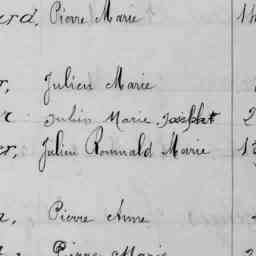 ard, Pierre Marie 1
r, Julien Marie
r Julien Marie Joseph 2
er, Julien Romuald Marie 1
n, Pierre Anne
Pierre Marie 2